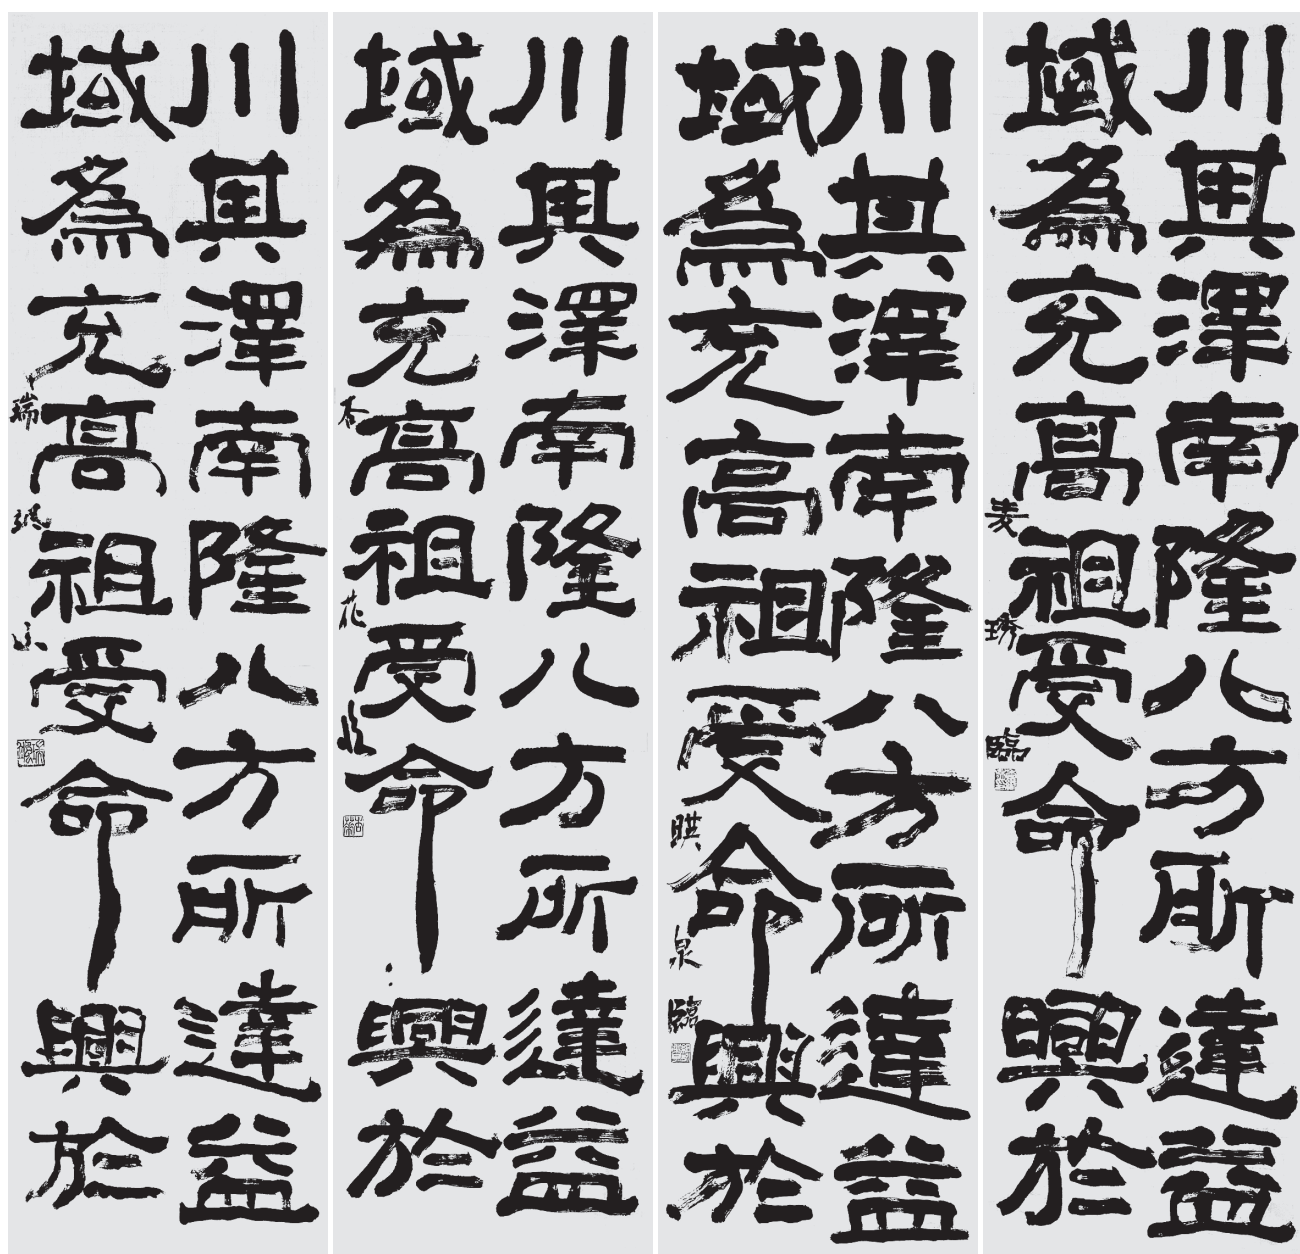 川其澤南隆八方所達益
域為充高祖受命興於
麦琇臨
川其澤南隆八方所達益
域為充高祖受命興於
泉臨
川其澤南隆八方所達益
域為充高祖受命興於
杏花臨
川其澤南隆八方所達益
域為充高祖受命興於
瑞